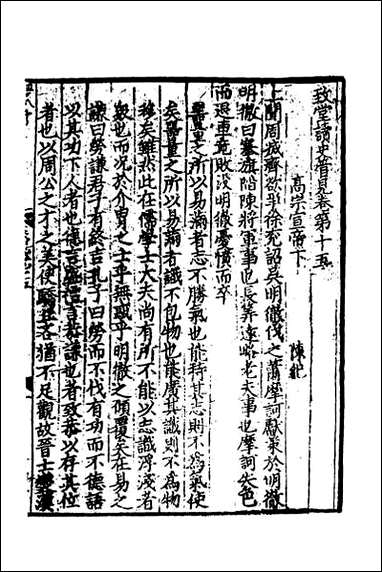 致堂讀史管見卷第十五
陳紀
高宗宣帝下
上聞周滅齊欲爭徐兗詔吳明徹伐之蕭摩訶獻策於明徹
明徹曰搴旗陷陳將軍事也長筭遠略老夫事也摩訶失色
而退軍竟敗沒明徹憂憤而卒
器量之所以易滿者志不勝氣也能持其志則不爲氣使
矣器量之所以易滿者識不包物也能廣其識則不爲物
移矣雖然此在儒學士大夫尚有所不能以志識浮淺者
衆也而況於介冑之士乎無恠乎明徹之傾覆矣在易之
謙曰勞謙君子有終吉孔子曰勞而不伐有功而不德語
以其功下人者也德言盛禮言恭謙也者致恭以存其位
者也以周公之才之美使驕且吝猶不足觀故晉士燮漢